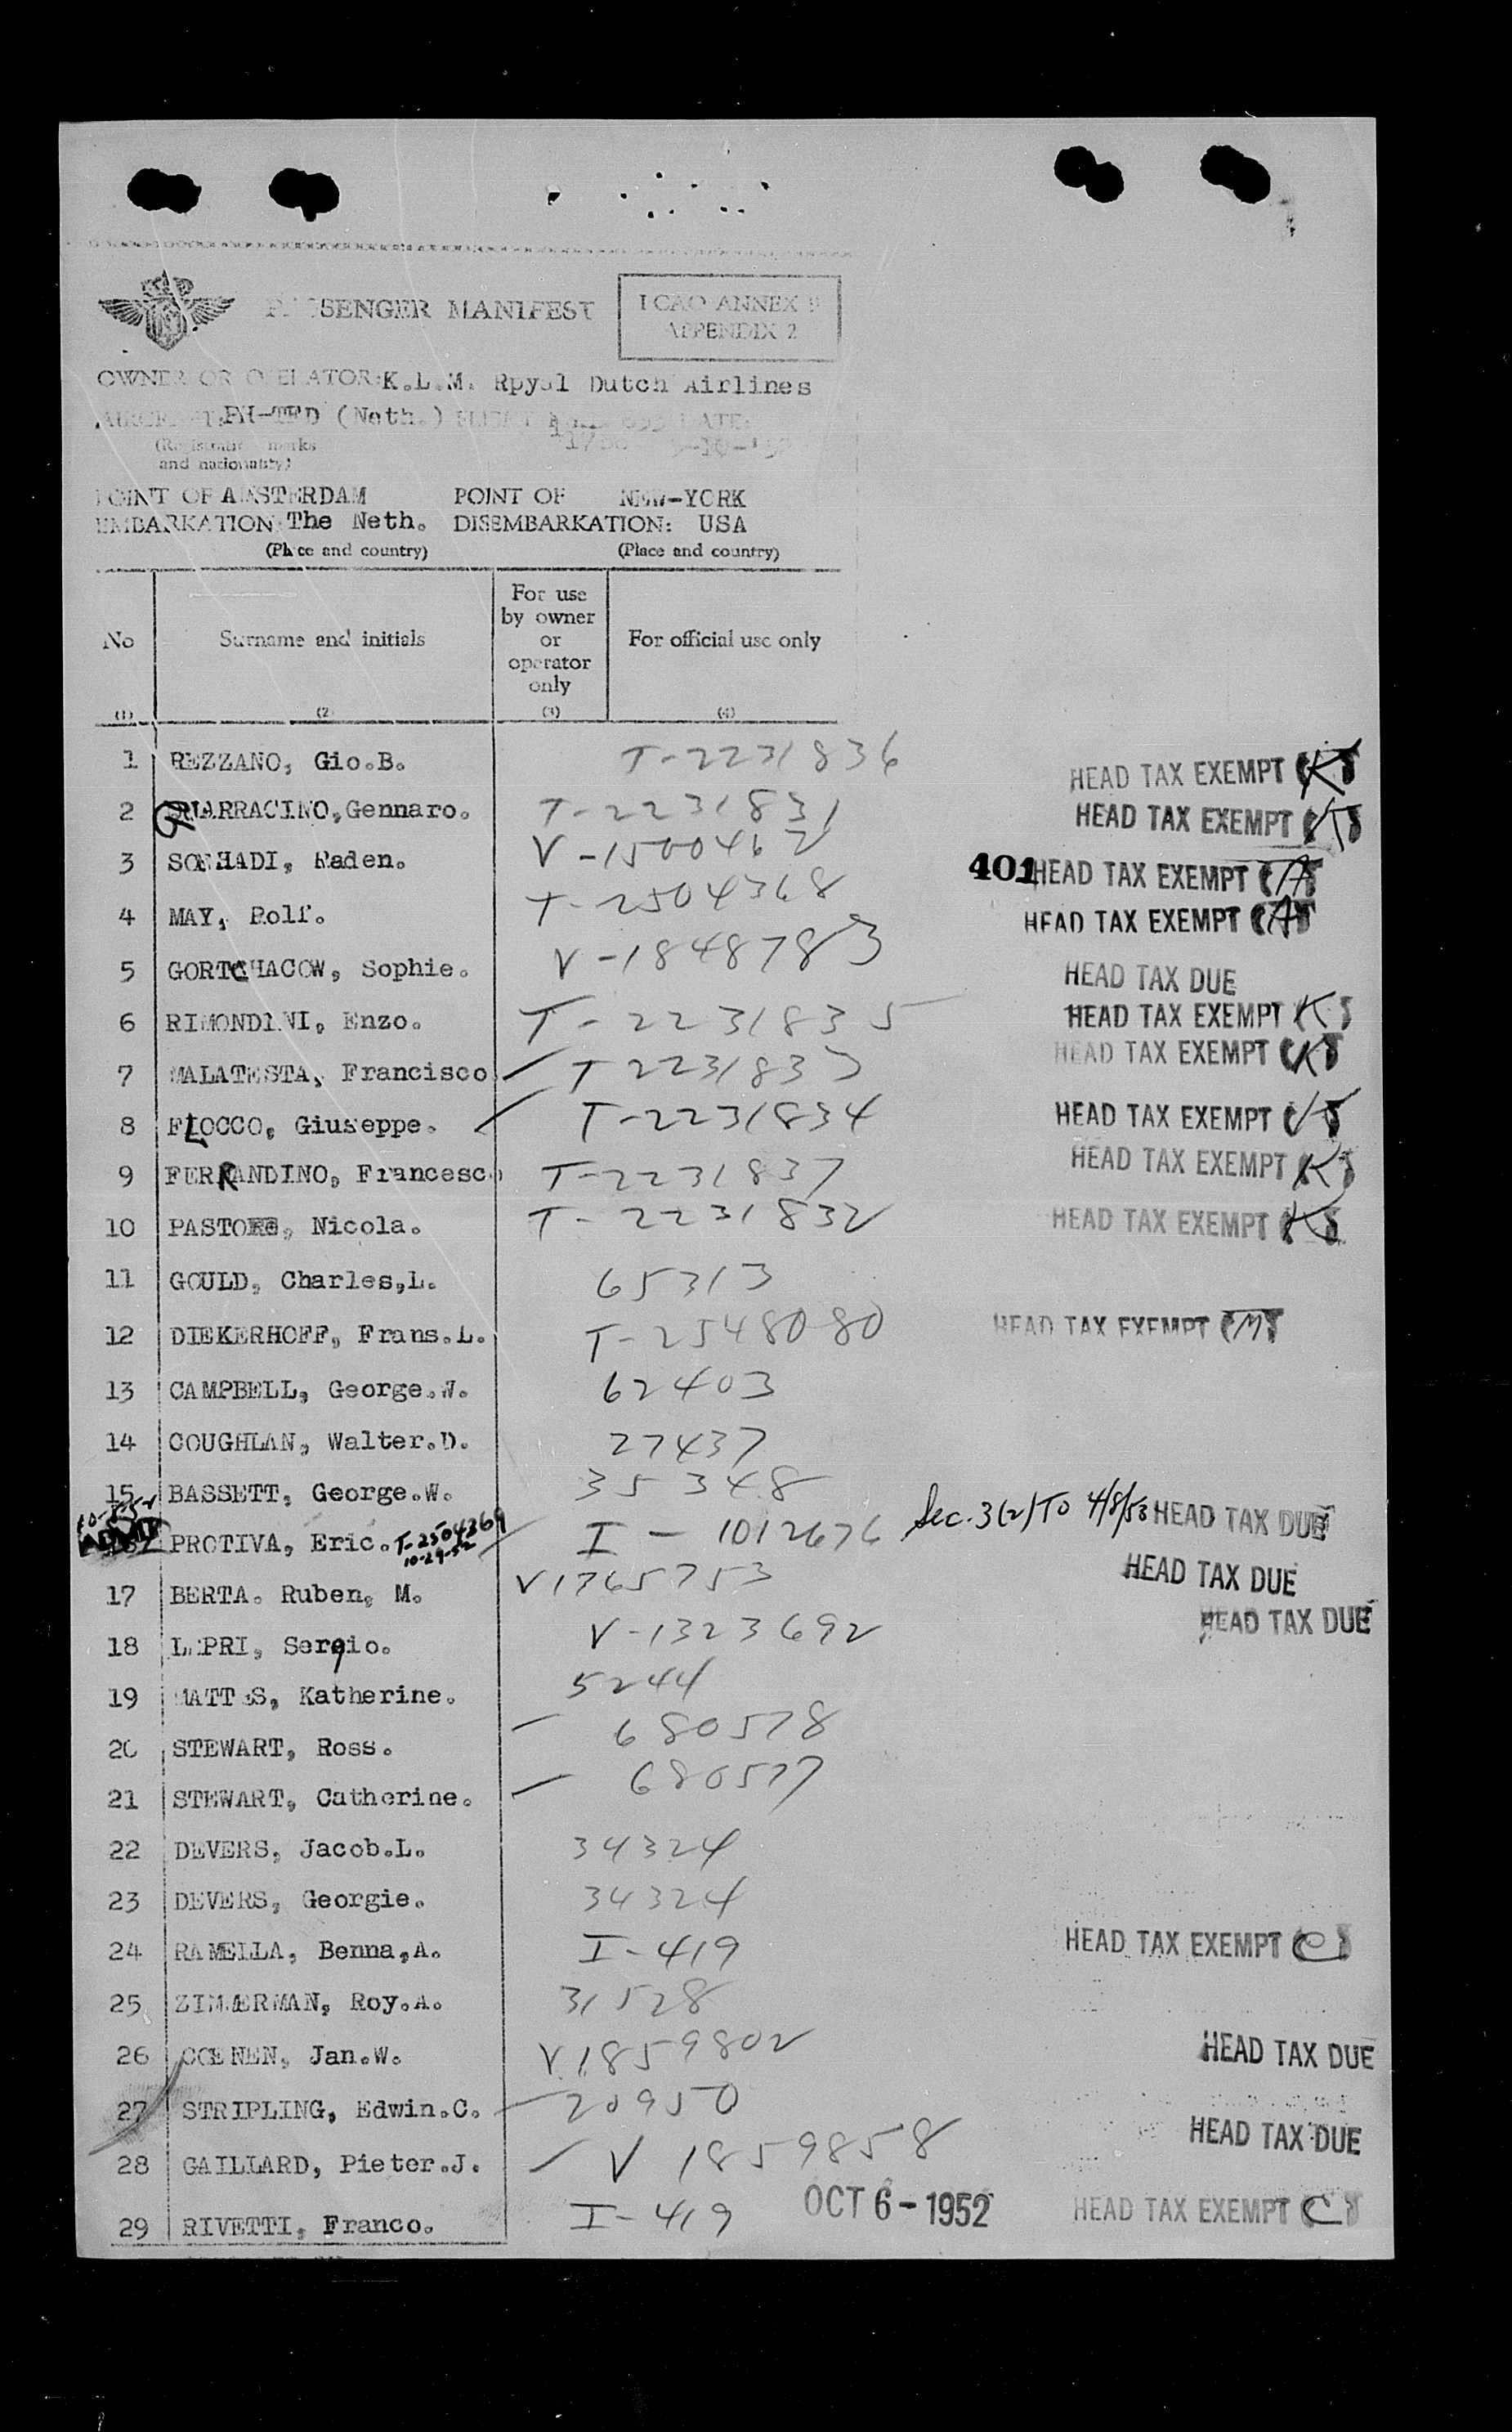 PASSENGER MANIFEST
ICAO ANNEX 9
APPENDIX 2
OWNER OR OPERATOR: K.L.M. Rpyal Dutch Airlines
(Neth.) DATE:
(Registration marks
and nationality)
POINT OF AMSTERDAM POINT OF NEW-YORK
EMBARKATION: The Neth. DISEMBARKATION: USA
(Place and country) (Place and country)
No Surname and initials For use by owner or operator only For official use only
(1) (2) (3) (4)
1 REZZANO, Gio.B. T-2231836 HEAD TAX EXEMPT
2 GUARRACINO,Gennaro. T-2231831 HEAD TAX EXEMPT
3 SOEHADI, Raden. V-1500462 401 HEAD TAX EXEMPT
4 MAY, Rolf. T-2504368 HEAD TAX EXEMPT
5 GORTCHACOW, Sophie. V-1848783 HEAD TAX DUE
6 RIMONDINI, Enzo. T-2231835 HEAD TAX EXEMPT
7 MALATESTA, Francisco T 2231833 HEAD TAX EXEMPT
8 FLOCCO, Giuseppe. T-2231834 HEAD TAX EXEMPT
9 FERRANDINO, Francesco T-2231837 HEAD TAX EXEMPT
10 PASTORE, Nicola. T-2231832 HEAD TAX EXEMPT
11 GOULD, Charles,L. 65313
12 DIEKERHOFF, Frans.L. T-2548080 HEAD TAX EXEMPT
13 CAMPBELL, George.W. 62403
14 COUGHLAN, Walter.D. 27437
15 BASSETT, George.W. 35348
ADMD PROTIVA, Eric. T-2504369 10-29-52 I-1012676 Sec. 3(2) TO 4/8/53 HEAD TAX DUE
17 BERTA. Ruben, M. V1765753 HEAD TAX DUE
18 LEPRI, Sergio. V-1323692 HEAD TAX DUE
19 MATTES, Katherine. 5244
20 STEWART, Ross. 680578
21 STEWART, Catherine. 680577
22 DEVERS, Jacob.L. 34324
23 DEVERS, Georgie. 34324
24 RAMELLA, Benna,A. I-419 HEAD TAX EXEMPT
25 ZIMMERMAN, Roy.A. 31528
26 COENEN, Jan.W. V1859802 HEAD TAX DUE
27 STRIPLING, Edwin.C. 20950
28 GAILLARD, Pieter.J. V 1859858 HEAD TAX DUE
29 RIVETTI, Franco. I-419 OCT 6-1952 HEAD TAX EXEMPT